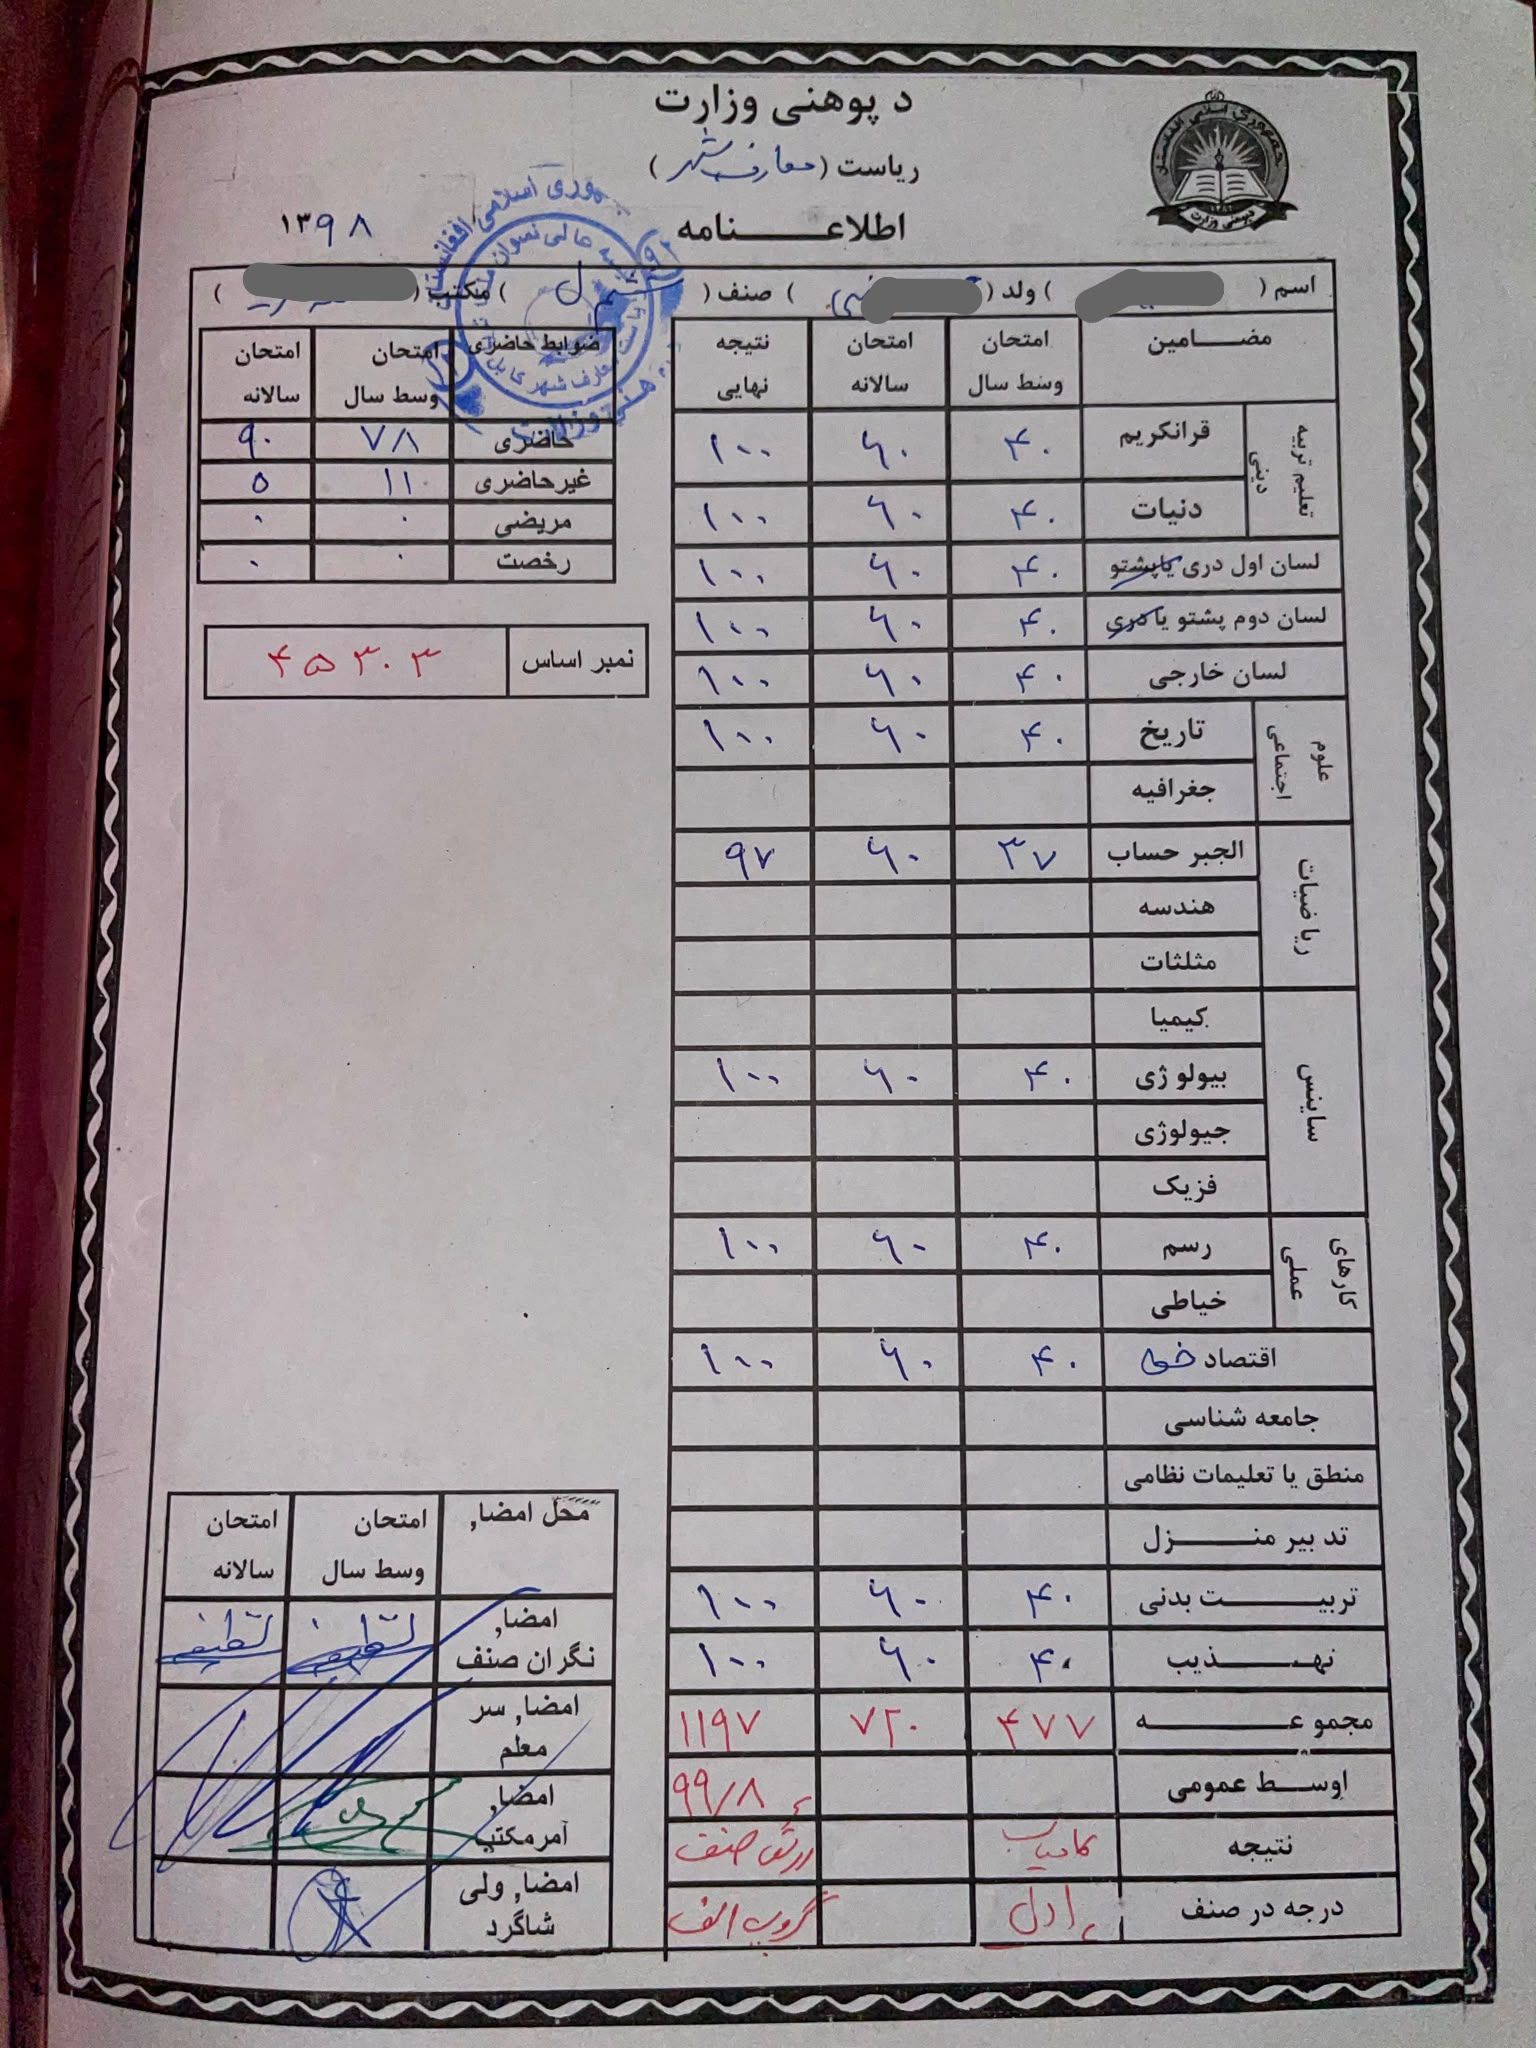 د پوهنی وزارت
ریاست (معارف شهر)
اطلاعـــــنامه
۱۳۹۸
جمهوری اسلامی افغانستان
د پوهنی وزارت
اسم ( ) ولد ( ) صنف ( ) مکتب ( )
مضـــامین امتحان وسط سال امتحان سالانه نتیجه نهایی
تعلیم تربیه دینی
قرانکریم ۴۰ ۶۰ ۱۰۰
دنیات ۴۰ ۶۰ ۱۰۰
لسان اول دری یا پشتو ۴۰ ۶۰ ۱۰۰
لسان دوم پشتو یا دری ۴۰ ۶۰ ۱۰۰
لسان خارجی ۴۰ ۶۰ ۱۰۰
علوم اجتماعی
تاریخ ۴۰ ۶۰ ۱۰۰
جغرافیه
ریاضیات
الجبر حساب ۳۷ ۶۰ ۹۷
هندسه
مثلثات
ساینس
کیمیا
بیولوژی ۴۰ ۶۰ ۱۰۰
جیولوژی
فزیک
کارهای عملی
رسم ۴۰ ۶۰ ۱۰۰
خیاطی
اقتصاد ۴۰ ۶۰ ۱۰۰
جامعه شناسی
منطق یا تعلیمات نظامی
تدبیر منـــــزل
تربیـــــت بدنی ۴۰ ۶۰ ۱۰۰
تهـــــذیب ۴۰ ۶۰ ۱۰۰
مجموعـــــه ۴۷۷ ۷۲۰ ۱۱۹۷
اوســـط عمومی ۹۹/۸
نتیجه کامیاب صنف
درجه در صنف اول گروپ الف
ضوابط حاضری امتحان وسط سال امتحان سالانه
حاضری ۷۸ ۹۰
غیرحاضری ۱۱ ۵
مریضی ۰ ۰
رخصت ۰ ۰
نمبر اساس ۴۵۳۰۳
محل امضاء امتحان وسط سال امتحان سالانه
امضاء نگران صنف
امضاء سر معلم
امضاء آمر مکتب
امضاء ولی شاگرد